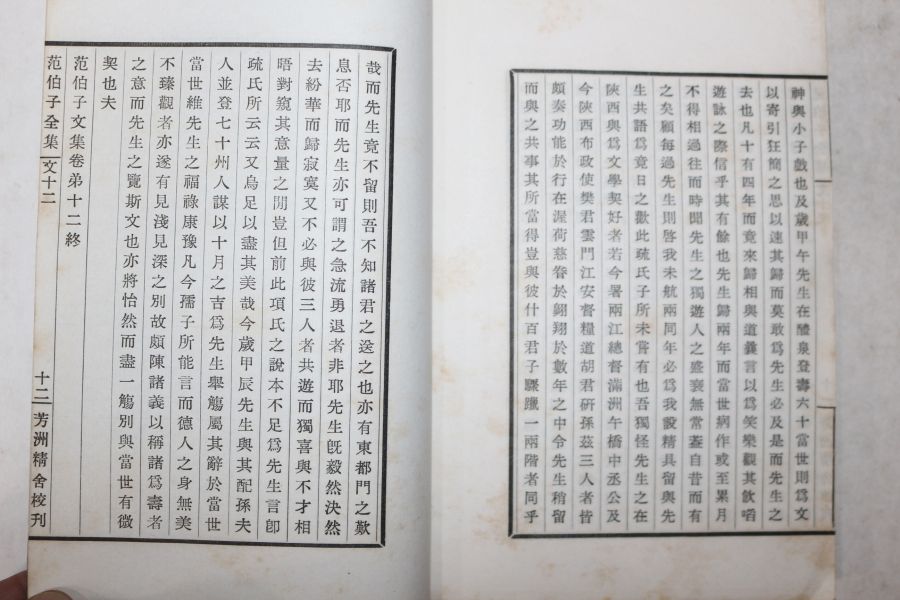 神與小子戲也及歲甲午先生在醴泉登壽六十當世則爲文
以寄引狂簡之思以速其歸而莫敢爲先生必及是而先生之
去也凡十有四年而竟來歸相與道義言以爲笑樂觀其飲啗
遊詠之際信乎其有餘也先生歸兩年而當世病作或至累月
不得相過往而時聞先生之獨遊人之盛衰無常蓋自昔而有
之矣顧每過先生則啓我未航兩同年必爲我設精具留與先
生共語爲竟日之歡此疏氏子所未嘗有也吾獨怪先生之在
陝西與爲文學契好者若今署兩江總督滿洲午橋中丞公及
今陝西布政使樊君雲門江安督糧道胡君研孫茲三人者皆
頗奏功能於行在渥荷慈眷於翺翔於數年之中令先生稍留
而與之共事其所當得豈與彼什百君子驟躐一兩階者同乎
哉而先生竟不留則吾不知諸君之送之也亦有東都門之歎
息否耶而先生亦可謂之急流勇退者非耶先生旣毅然決然
去紛華而歸寂寞又不必與彼三人者共遊而獨喜與不才相
晤對窺其意量之閒豈但前此項氏之說本不足爲先生言卽
疏氏所云云又烏足以盡其美哉今歲甲辰先生與其配孫夫
人並登七十州人謀以十月之吉爲先生舉觴屬其辭於當世
當世維先生之福祿康豫凡今孺子所能言而德人之身無美
不臻觀者亦遂有見淺見深之別故頗陳諸義以稱諸爲壽者
之意而先生之覽斯文也亦將怡然而盡一觴別與當世有微
契也夫
范伯子文集卷弟十二終
范伯子全集 文十二 十二 芳洲精舍校刊